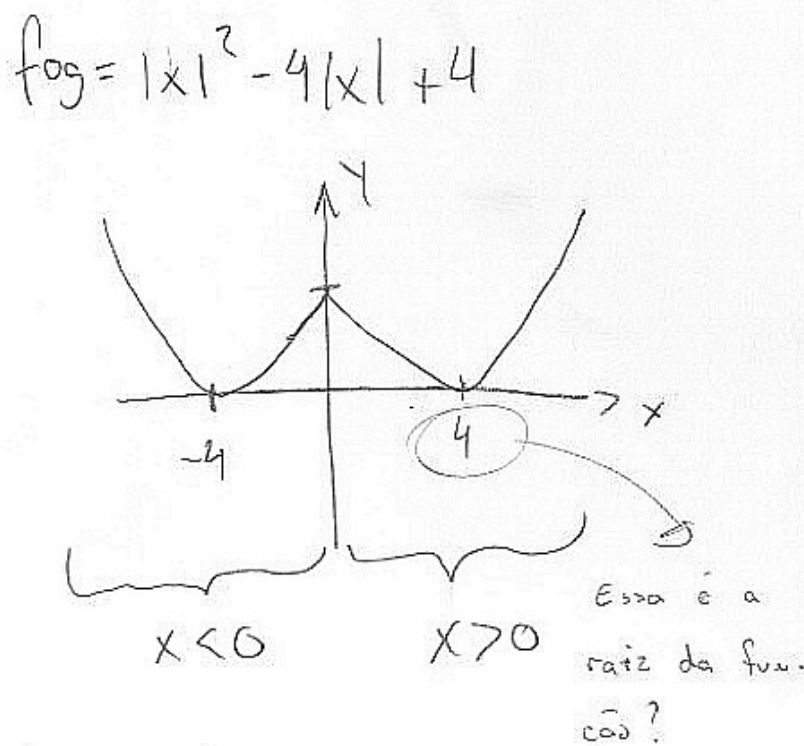 fog = |x|² - 4|x| + 4
Y
X
-4
4
x < 0
x > 0
Essa é a
raiz da fun-
ção?